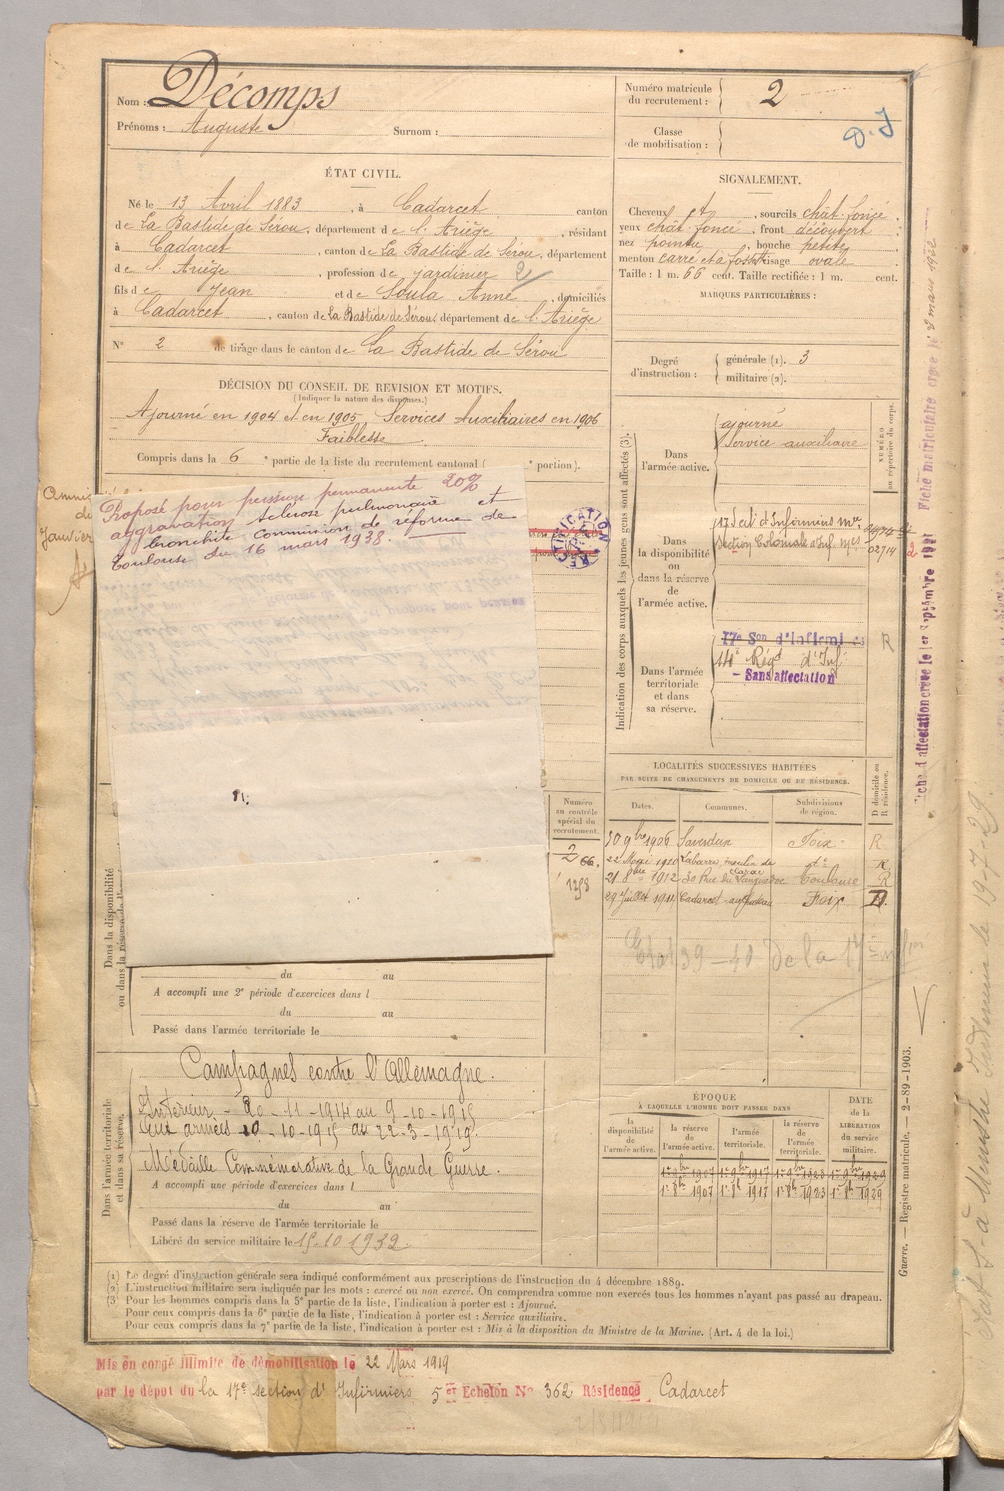 Nom : Décomps
Prénoms : Auguste Surnom :
Numéro matricule
du recrutement : 2
Classe
de mobilisation :
D. J
ÉTAT CIVIL.
Né le 13 Avril 1883, à Cadarcet canton
de La Bastide de Sérou, département de l'Ariège, résidant
à Cadarcet, canton de La Bastide de Sérou, département
de l'Ariège, profession de jardinier
fils de Jean et de Soula Anne, domiciliés
à Cadarcet, canton de La Bastide de Sérou, département de l'Ariège
N° 2 de tirage dans le canton de La Bastide de Sérou
SIGNALEMENT.
Cheveux et, sourcils chât foncé
yeux chât. foncé, front découvert
nez pointu, bouche petite
menton carré et à fossette visage ovale
Taille : 1 m. 66 cent. Taille rectifiée : 1 m. cent.
MARQUES PARTICULIÈRES :
Degré
d'instruction :
générale (1). 3
militaire (2).
DÉCISION DU CONSEIL DE REVISION ET MOTIFS.
(Indiquer la nature des dispenses.)
Ajourné en 1904 et en 1905 Services Auxiliaires en 1906
Faiblesse
Compris dans la 6e partie de la liste du recrutement cantonal ( e portion).
Proposé pour pension permanente 20%
aggravation sclérose pulmonaire et
bronchite commission de réforme de
Toulouse du 16 mars 1938.
RECTIFICATION
Indication des corps auxquels les jeunes gens sont affectés (3).
NUMÉRO
au répertoire du corps.
Dans
l'armée active.
ajourné
Service auxiliaire
Dans
la disponibilité
ou
dans la réserve
de
l'armée active.
17e Sect. d'Infirmiers Mres
Section Coloniale d'Inf. Mres
02714
Dans l'armée
territoriale
et dans
sa réserve.
17e Son d'Infirmiers R
14e Régt d'Inf
- Sans affectation
LOCALITÉS SUCCESSIVES HABITÉES
PAR SUITE DE CHANGEMENTS DE DOMICILE OU DE RÉSIDENCE.
Dates. Communes. Subdivisions
de région.
D domicile ou
R résidence.
30 9bre 1906 Saverdun Foix R
22 Mai 1910 Labarre moulin de dt R
21 8bre 1912 30 Rue du Languedoc Toulouse R
29 Juillet 1911 Cadarcet Foix D
Etat 39-40 de la 17e
Numéro
au contrôle
spécial du
recrutement.
2 66.
1258
Dans la disponibilité
ou dans la réserve de l'a
du au
A accompli une 2e période d'exercices dans l
du au
Passé dans l'armée territoriale le
Dans l'armée territoriale
et dans sa réserve.
Campagnes contre l'Allemagne.
Intérieur - 20 - 11 - 1914 au 9 - 10 - 1915
Aux armées 10 - 10 - 1915 au 22 - 3 - 1919.
Médaille Commémorative de la Grande Guerre.
A accompli une période d'exercices dans l
du au
Passé dans la réserve de l'armée territoriale le
Libéré du service militaire le 15-10 1932
ÉPOQUE
À LAQUELLE L'HOMME DOIT PASSER DANS
la
disponibilité
de
l'armée active.
la réserve
de
l'armée active.
l'armée
territoriale.
la réserve
de
l'armée
territoriale.
DATE
de la
LIBÉRATION
du service
militaire.
1er 9bre 1907 1er 9bre 1917 1er 9bre 1923 1er 9bre 1929
1er 8bre 1907 1er 8bre 1917 1er 8bre 1923 1er 8bre 1929
(1) Le degré d'instruction générale sera indiqué conformément aux prescriptions de l'instruction du 4 décembre 1889.
(2) L'instruction militaire sera indiquée par les mots : exercé ou non exercé. On comprendra comme non exercés tous les hommes n'ayant pas passé au drapeau.
(3) Pour les hommes compris dans la 5e partie de la liste, l'indication à porter est : Ajourné.
Pour ceux compris dans la 6e partie de la liste, l'indication à porter est : Service auxiliaire.
Pour ceux compris dans la 7e partie de la liste, l'indication à porter est : Mis à la disposition du Ministre de la Marine. (Art. 4 de la loi.)
Mis en congé illimité de démobilisation le 22 Mars 1919
par le dépôt du la 17e section d'Infirmiers 5e Echelon N° 362 Résidence Cadarcet
Guerre. — Registre matricule. — 2-89-1903.
Fiche d'affectation créée le 1er Septembre 1921 Fiche matriculaire créée le 8 mars 1922